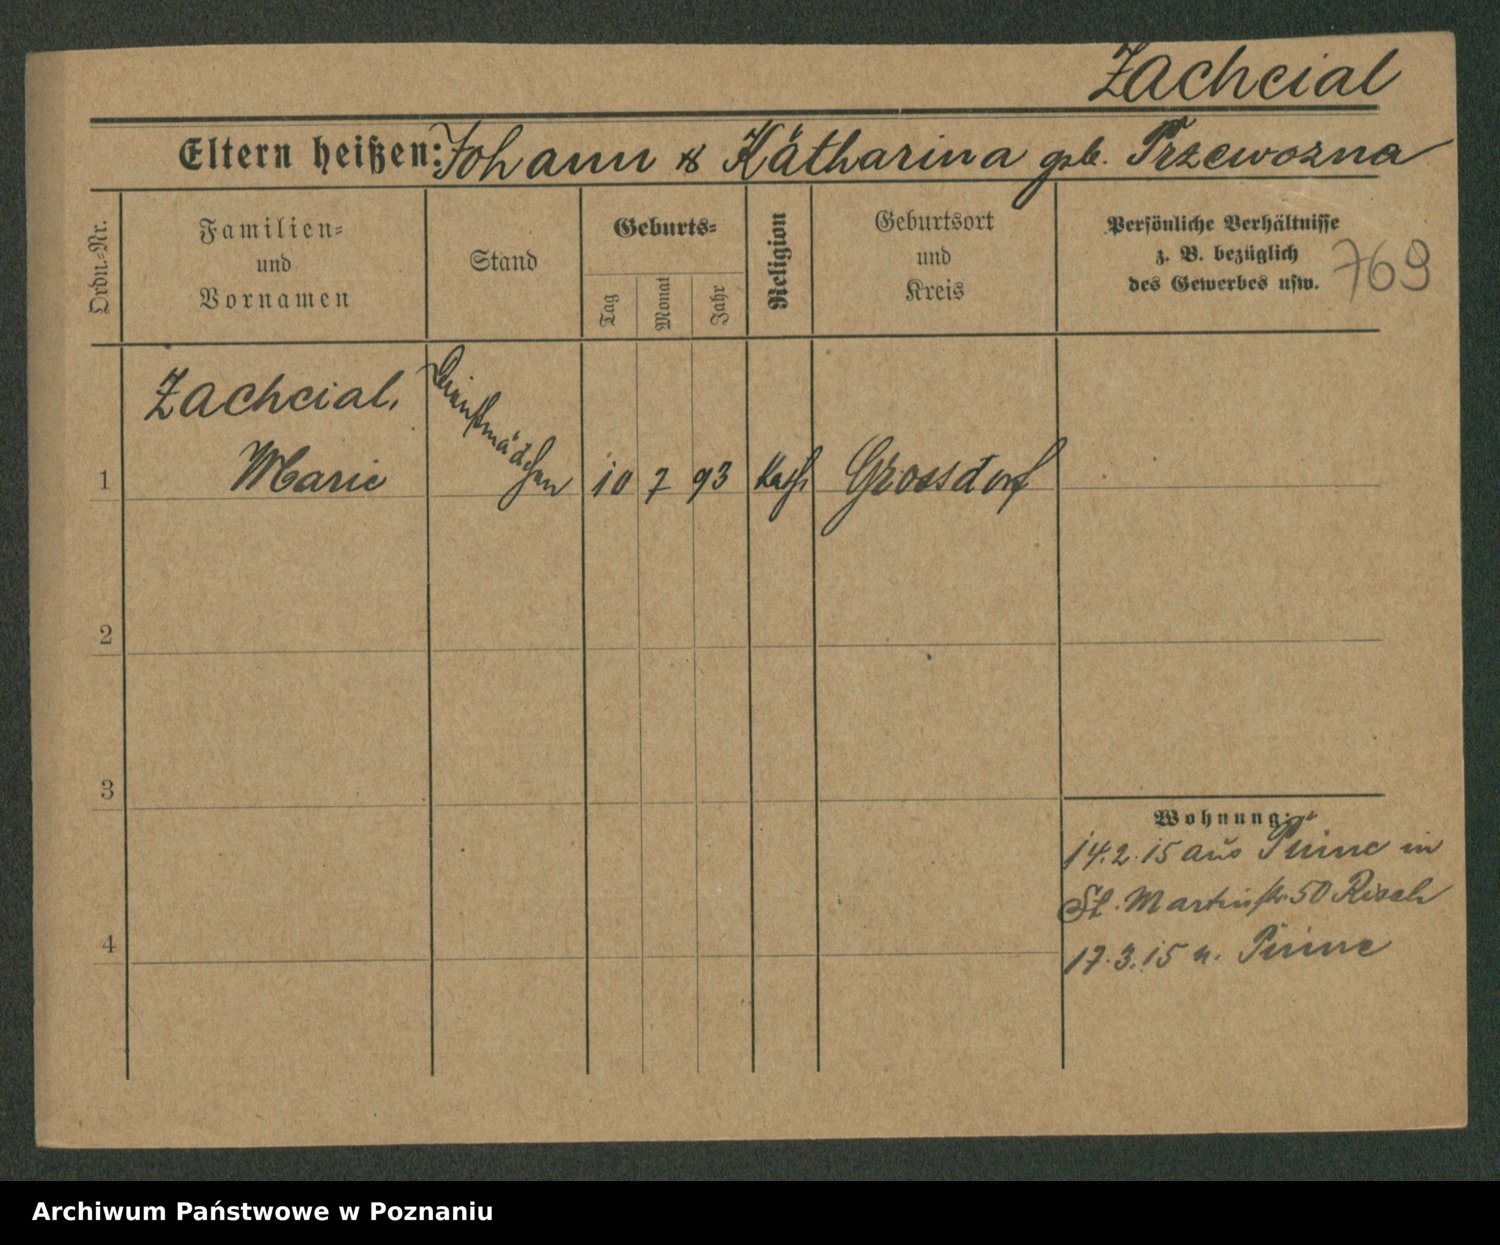 Zachcial
Eltern heißen: Johann & Kätharina geb. Przewozna
Ordn.-Nr.
Familien-
und
Vornamen
Stand
Geburts-
Tag
Monat
Jahr
Religion
Geburtsort
und
Kreis
Persönliche Verhältnisse
z. B. bezüglich
des Gewerbes usw.
769
Zachcial,
1 Marie Dienstmädchen 10 7 93 Kath. Grossdorf
2
3
4
Wohnung:
14.2.15 aus Pinne in
St. Martinstr. 50
17.3.15 n. Pinne
Archiwum Państwowe w Poznaniu